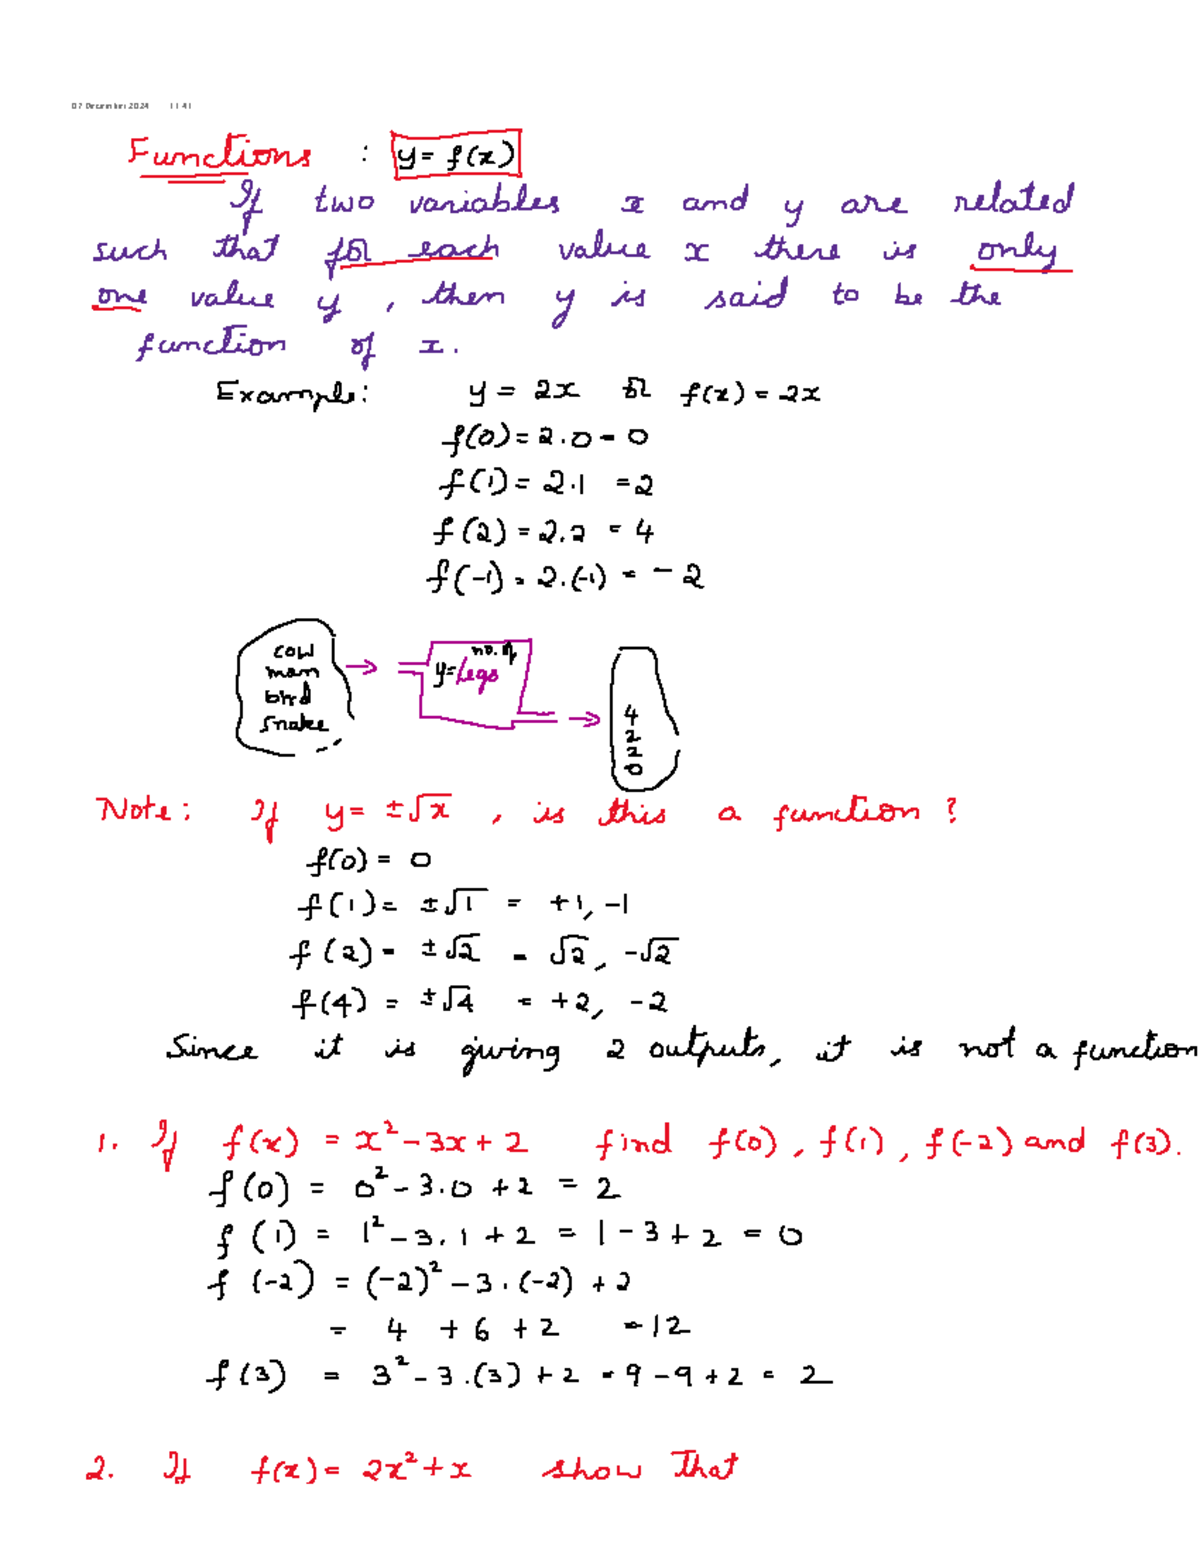 07 December 2024 11:41
Functions : y = f(x)
If two variables x and y are related
such that for each value x there is only
one value y , then y is said to be the
function of x.
Example: y = 2x or f(x) = 2x
f(0) = 2.0 = 0
f(1) = 2.1 = 2
f(2) = 2.2 = 4
f(-1) = 2.(-1) = -2
cow
man
bird
snake
y = no. of legs
4
2
2
0
Note: If y = ±√x , is this a function ?
f(0) = 0
f(1) = ±√1 = +1, -1
f(2) = ±√2 = √2, -√2
f(4) = ±√4 = +2, -2
Since it is giving 2 outputs, it is not a function
1. If f(x) = x² - 3x + 2 find f(0), f(1), f(-2) and f(3).
f(0) = 0² - 3.0 + 2 = 2
f(1) = 1² - 3.1 + 2 = 1 - 3 + 2 = 0
f(-2) = (-2)² - 3.(-2) + 2
= 4 + 6 + 2 = 12
f(3) = 3² - 3.(3) + 2 = 9 - 9 + 2 = 2
2. If f(x) = 2x² + x show that